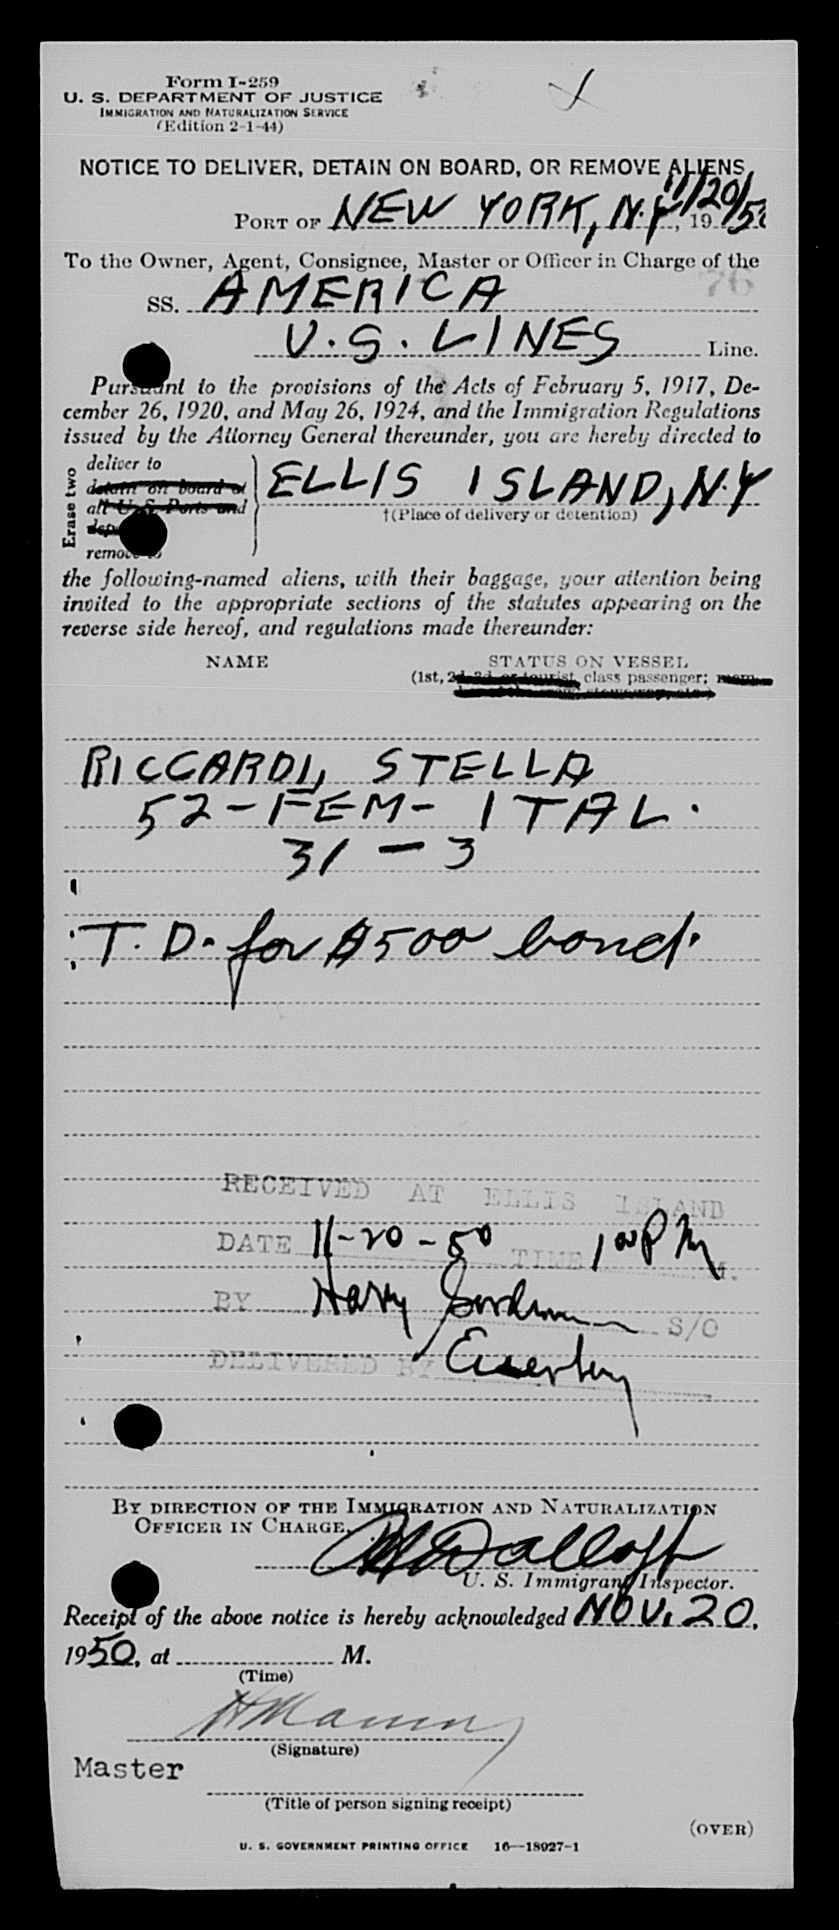 Form I-259
U. S. DEPARTMENT OF JUSTICE
IMMIGRATION AND NATURALIZATION SERVICE
(Edition 2-1-44)
NOTICE TO DELIVER, DETAIN ON BOARD, OR REMOVE ALIENS
PORT OF NEW YORK, N.Y, 19 11/20/50
To the Owner, Agent, Consignee, Master or Officer in Charge of the
76
SS. AMERICA
U.S. LINES Line.
Pursuant to the provisions of the Acts of February 5, 1917, De-
cember 26, 1920, and May 26, 1924, and the Immigration Regulations
issued by the Attorney General thereunder, you are hereby directed to
Erase two
deliver to
detain on board at
all U. S. Ports and
remove to
ELLIS ISLAND, N.Y
†(Place of delivery or detention)
the following-named aliens, with their baggage, your attention being
invited to the appropriate sections of the statutes appearing on the
reverse side hereof, and regulations made thereunder:
NAME STATUS ON VESSEL
(1st, 2d, 3d, or tourist, class passenger; mem-
RICCARDI, STELLA
52-FEM-ITAL.
31-3
T.D. for $500 bond.
RECEIVED AT ELLIS ISLAND
DATE 11-20-50 TIME 1 00 P M M.
BY Harry S/O
DELIVERED BY
BY DIRECTION OF THE IMMIGRATION AND NATURALIZATION
OFFICER IN CHARGE.
U. S. Immigrant Inspector.
Receipt of the above notice is hereby acknowledged NOV. 20,
1950, at M.
(Time)
(Signature)
Master
(Title of person signing receipt)
(OVER)
U. S. GOVERNMENT PRINTING OFFICE 16—18927-1